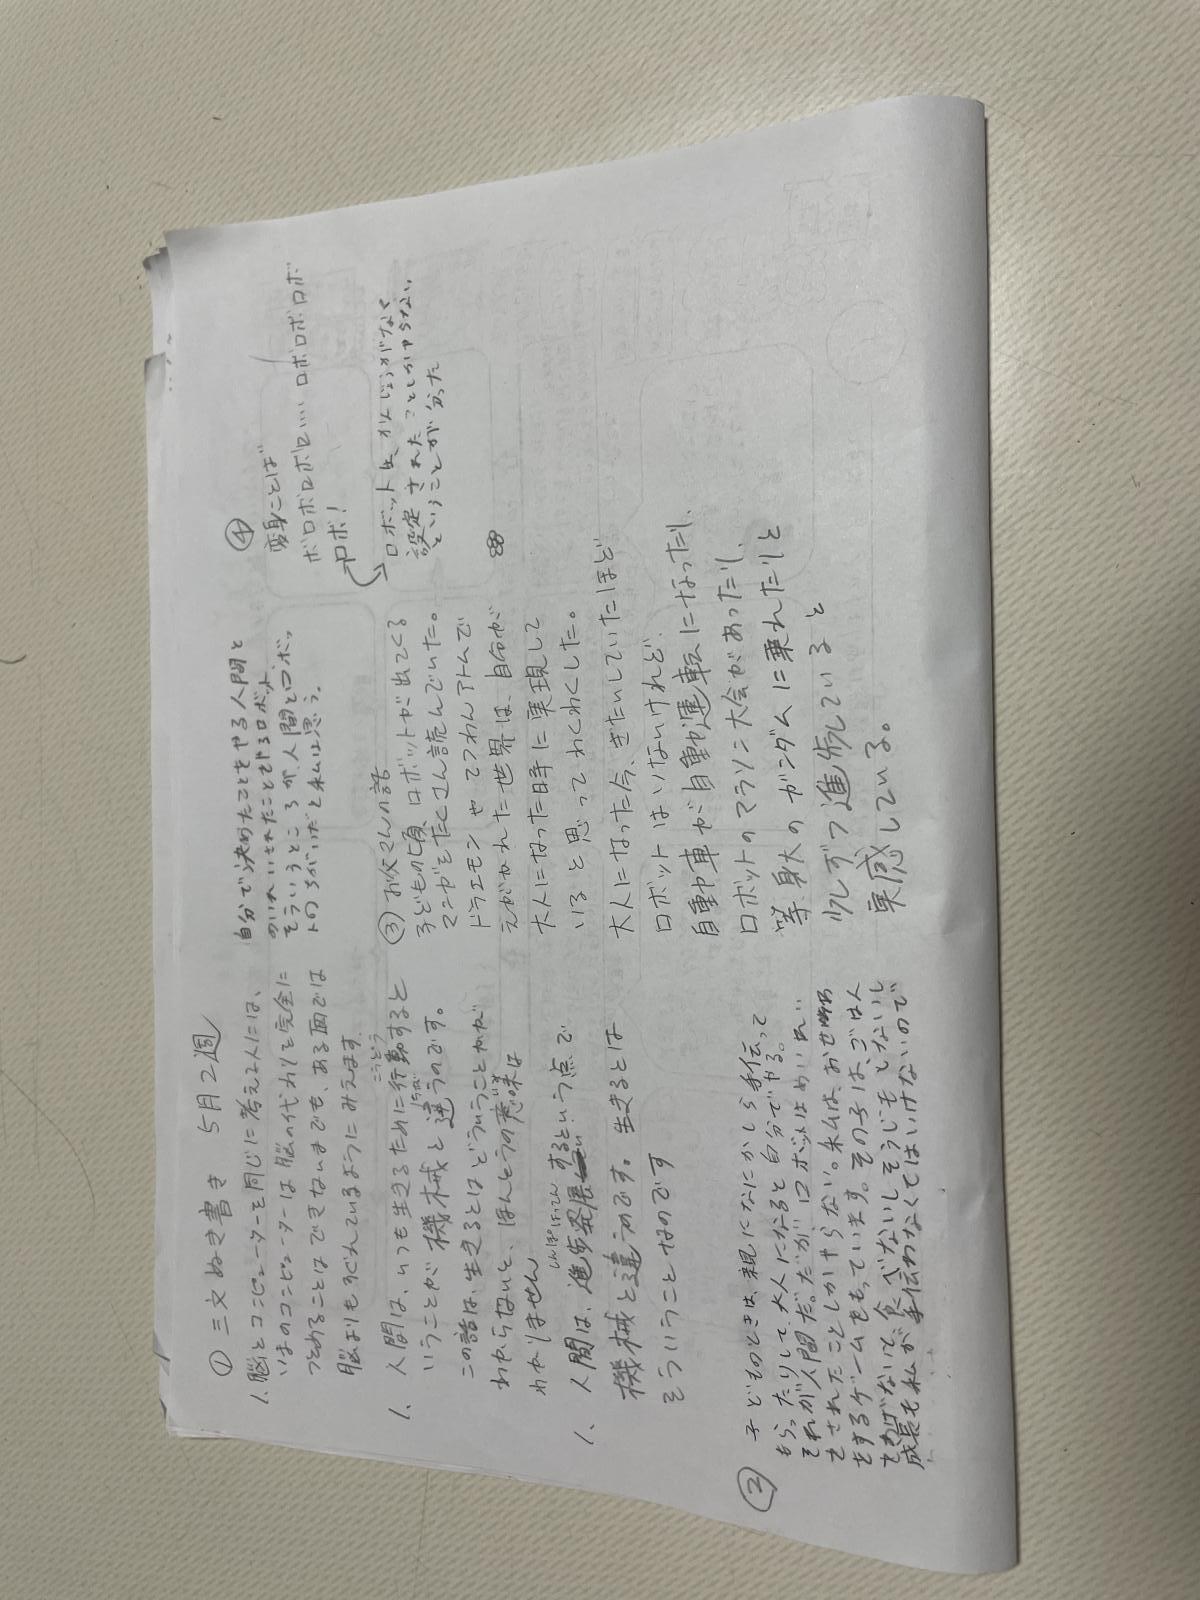 ① 三文ぬき書き 5月2週
1. 脳とコンピューターを同じに考える人には、
いまのコンピューターは脳の代わりを完全に
つとめることはできないまでも、ある面では
脳よりもすぐれているようにみえます。
1. 人間は、いつも生きるために行動すると
こうどう
いうことが機械と違うのです。
ちが
この話は、生きるとはどういうことかが
わからないと、ほんとうの意味は
いみ
わかりません
1. 人間は、進歩発展するという点で
しんぽはってん
機械と違うのです。生きるとは
そういうことなのです
② 子どものときは、親になにかしら手伝って
もらったりして、大人になると自分でやる。
それが人間だ。だが、ロボットはめいれい
をされたことしかやらない。私は、お世話
をするゲームをもっています。その子は、ごはん
をあげないと、食べないしそうじもしないし
成長も私が手伝わなくてはいけないので
自分で決めたことをやる人間と
めいれいされたことをやるロボット、
そういうところが人間とロボッ
トのちがいだと私は思う。
③ お父さんの話
子どもの頃、ロボットが出てくる
マンガをたくさん読んでいた。
ドラエモンやてつわんアトムで
えがかれた世界は、自分が
大人になった時に実現して
いると思ってわくわくした。
大人になった今、きたいしていたほど
ロボットはいないけれど、
自動車が自動運転になったり、
ロボットのマラソン大会があったり、
等身大のガンダムに乗れたりと
少しずつ進歩していると
実感している。
④
変身ことば
ボロボロボロ…ロボロボロボ
ロボ!
ロボットは、かんじょうがなく
設定されたことしかやらない
ということが分った